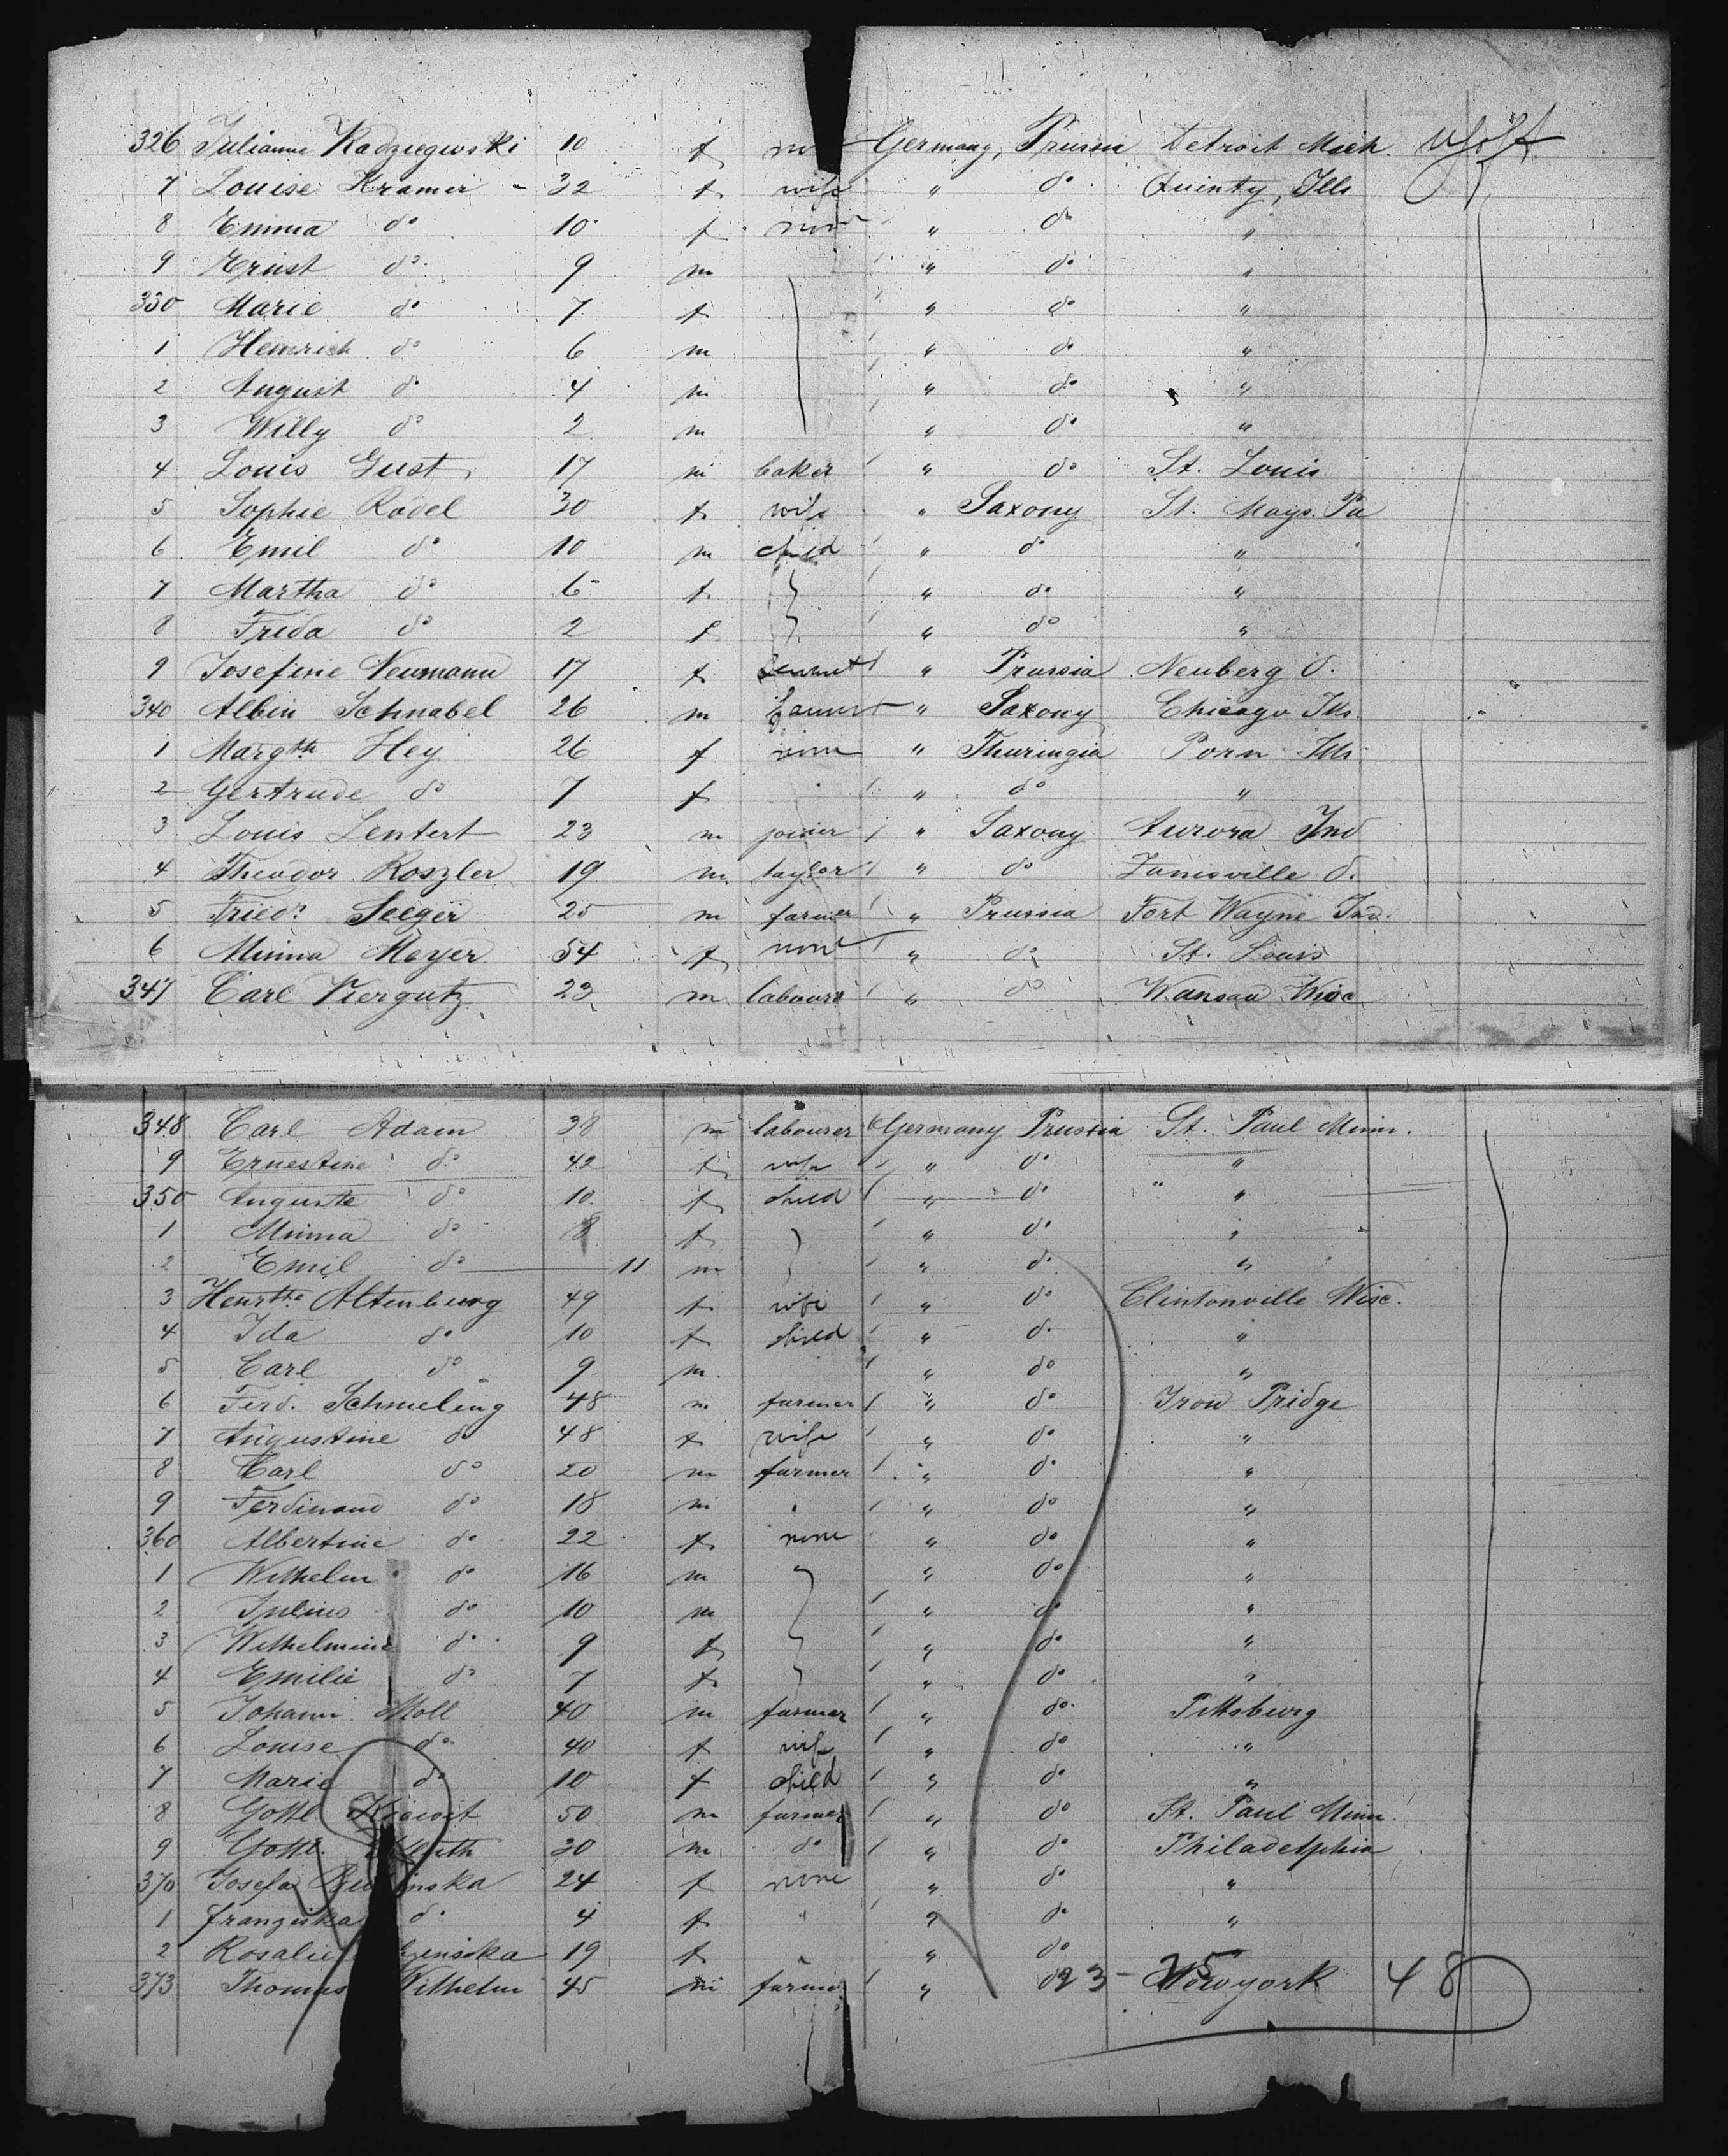 326 Julianne Radziegewski 10 f no Germany, Prussia Detroit Mich.
7 Louise Kramer - 32 f wife " do Quinty, Ills
8 Emma do 10 f none " do "
9 Ernst do 9 m " do "
330 Marie do 7 f " do "
1 Heinrich do 6 m " do "
2 August do 4 m " do "
3 Willy do 2 m " do "
4 Louis Gust 17 m baker " do St. Louis
5 Sophie Radel 30 f wife " Saxony St. Mays. Pa
6 Emil do 10 m child " do "
7 Martha do 6 f " do "
8 Frida do 2 f " do "
9 Josefine Neumann 17 f " Prussia Neuberg O.
340 Albin Schnabel 26 m farmer " Saxony Chicago Ills.
1 Margth Hey 26 f none " Thuringia Porn Ills
2 Gertrude do 7 f " do "
3 Louis Lentert 23 m joiner " Saxony Aurora Ind
4 Theodor Roszler 19 m taylor " do Zanisville O.
5 Friedr. Seeger 25 m farmer " Prussia Fort Wayne Ind.
6 Minna Meyer 54 f none " do St. Louis
347 Carl Viergutz 23 m labourer " do Wansau Wisc
348 Carl Adam 38 m labourer Germany Prussia St. Paul Minn.
9 Ernestine do 42 f wife " do "
350 Auguste do 10 f child " do "
1 Minna do 8 f " do "
2 Emil do 11 m " do "
3 Henrtte Altenburg 49 f wife " do Clintonville Wisc.
4 Ida do 10 f child " do "
5 Carl do 9 m " do "
6 Ferd. Schmeling 48 m farmer " do Iron Pridge
7 Augustine do 48 f wife " do "
8 Carl do 20 m farmer " do "
9 Ferdinand do 18 m " " do "
360 Albertine do 22 f none " do "
1 Wilhelm do 16 m " do "
2 Julius do 10 m " do "
3 Wilhelmine do 9 f " do "
4 Emilie do 7 f " do "
5 Johann Moll 40 m farmer " do Pittsburg
6 Louise do 40 f wife " do "
7 Marie do 10 f child " do "
8 Gottl. 50 m farmer " do St. Paul Minn
9 Gottl. 30 m do " do Philadelphia
370 Josefa 24 f none " do "
1 Franziska do 4 f " " do "
2 Rosalie 19 f " " do "
373 Thomas Wilhelm 45 m farmer " do 23- Newyork 48